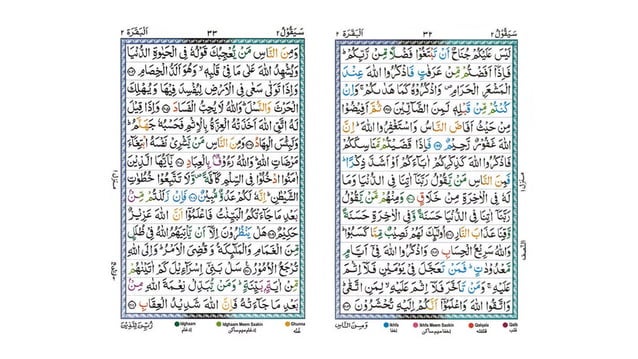 سَيَقُوْلُ ٢
٣٢
اَلْبَقَرَة ٢
لَيْسَ عَلَيْكُمْ جُنَاحٌ اَنْ تَبْتَغُوْا فَضْلًا مِّنْ رَّبِّكُمْ ؕ
فَاِذَاۤ اَفَضْتُمْ مِّنْ عَرَفٰتٍ فَاذْكُرُوا اللّٰهَ عِنْدَ
الْمَشْعَرِ الْحَرَامِ ۪ وَاذْكُرُوْهُ كَمَا هَدٰىكُمْ ۚ وَاِنْ
كُنْتُمْ مِّنْ قَبْلِهٖ لَمِنَ الضَّآلِّيْنَ ثُمَّ اَفِيْضُوْا
مِنْ حَيْثُ اَفَاضَ النَّاسُ وَاسْتَغْفِرُوا اللّٰهَ ؕ اِنَّ
اللّٰهَ غَفُوْرٌ رَّحِيْمٌ فَاِذَا قَضَيْتُمْ مَّنَاسِكَكُمْ
فَاذْكُرُوا اللّٰهَ كَذِكْرِكُمْ اٰبَآءَكُمْ اَوْ اَشَدَّ ذِكْرًا ؕ
فَمِنَ النَّاسِ مَنْ يَّقُوْلُ رَبَّنَاۤ اٰتِنَا فِي الدُّنْيَا وَمَا
لَهٗ فِي الْاٰخِرَةِ مِنْ خَلَاقٍ وَمِنْهُمْ مَّنْ يَّقُوْلُ
رَبَّنَاۤ اٰتِنَا فِي الدُّنْيَا حَسَنَةً وَّفِي الْاٰخِرَةِ حَسَنَةً
وَّقِنَا عَذَابَ النَّارِ اُولٰٓئِكَ لَهُمْ نَصِيْبٌ مِّمَّا كَسَبُوْا ؕ
وَاللّٰهُ سَرِيْعُ الْحِسَابِ وَاذْكُرُوا اللّٰهَ فِيْۤ اَيَّامٍ
مَّعْدُوْدٰتٍ ؕ فَمَنْ تَعَجَّلَ فِيْ يَوْمَيْنِ فَلَاۤ اِثْمَ
عَلَيْهِ ۚ وَمَنْ تَاَخَّرَ فَلَاۤ اِثْمَ عَلَيْهِ ۙ لِمَنِ اتَّقٰى ؕ
وَاتَّقُوا اللّٰهَ وَاعْلَمُوْۤا اَنَّكُمْ اِلَيْهِ تُحْشَرُوْنَ
وَمِنَ النَّاسِ
Ikhfa
Ikhfa Meem Saakin
Qalqala
Qalb
سَيَقُوْلُ ٢
٣٣
اَلْبَقَرَة ٢
وَمِنَ النَّاسِ مَنْ يُّعْجِبُكَ قَوْلُهٗ فِي الْحَيٰوةِ الدُّنْيَا
وَيُشْهِدُ اللّٰهَ عَلٰى مَا فِيْ قَلْبِهٖ ۙ وَهُوَ اَلَدُّ الْخِصَامِ
وَاِذَا تَوَلّٰى سَعٰى فِي الْاَرْضِ لِيُفْسِدَ فِيْهَا وَيُهْلِكَ
الْحَرْثَ وَالنَّسْلَ ؕ وَاللّٰهُ لَا يُحِبُّ الْفَسَادَ وَاِذَا قِيْلَ
لَهُ اتَّقِ اللّٰهَ اَخَذَتْهُ الْعِزَّةُ بِالْاِثْمِ فَحَسْبُهٗ جَهَنَّمُ ؕ
وَلَبِئْسَ الْمِهَادُ وَمِنَ النَّاسِ مَنْ يَّشْرِيْ نَفْسَهُ ابْتِغَآءَ
مَرْضَاتِ اللّٰهِ ؕ وَاللّٰهُ رَءُوْفٌۢ بِالْعِبَادِ يٰۤاَيُّهَا الَّذِيْنَ
اٰمَنُوا ادْخُلُوْا فِي السِّلْمِ كَآفَّةً ۪ وَلَا تَتَّبِعُوْا خُطُوٰتِ
الشَّيْطٰنِ ؕ اِنَّهٗ لَكُمْ عَدُوٌّ مُّبِيْنٌ فَاِنْ زَلَلْتُمْ مِّنْۢ
بَعْدِ مَا جَآءَتْكُمُ الْبَيِّنٰتُ فَاعْلَمُوْۤا اَنَّ اللّٰهَ عَزِيْزٌ
حَكِيْمٌ هَلْ يَنْظُرُوْنَ اِلَّاۤ اَنْ يَّاْتِيَهُمُ اللّٰهُ فِيْ ظُلَلٍ
مِّنَ الْغَمَامِ وَالْمَلٰٓئِكَةُ وَقُضِيَ الْاَمْرُ ؕ وَاِلَى اللّٰهِ
تُرْجَعُ الْاُمُوْرُ سَلْ بَنِيْۤ اِسْرَآءِيْلَ كَمْ اٰتَيْنٰهُمْ
مِّنْ اٰيَةٍۢ بَيِّنَةٍ ؕ وَمَنْ يُّبَدِّلْ نِعْمَةَ اللّٰهِ مِنْۢ
بَعْدِ مَا جَآءَتْهُ فَاِنَّ اللّٰهَ شَدِيْدُ الْعِقَابِ
زُيِّنَ لِلَّذِيْنَ
Idghaam
Idghaam Meem Saakin
Ghunna